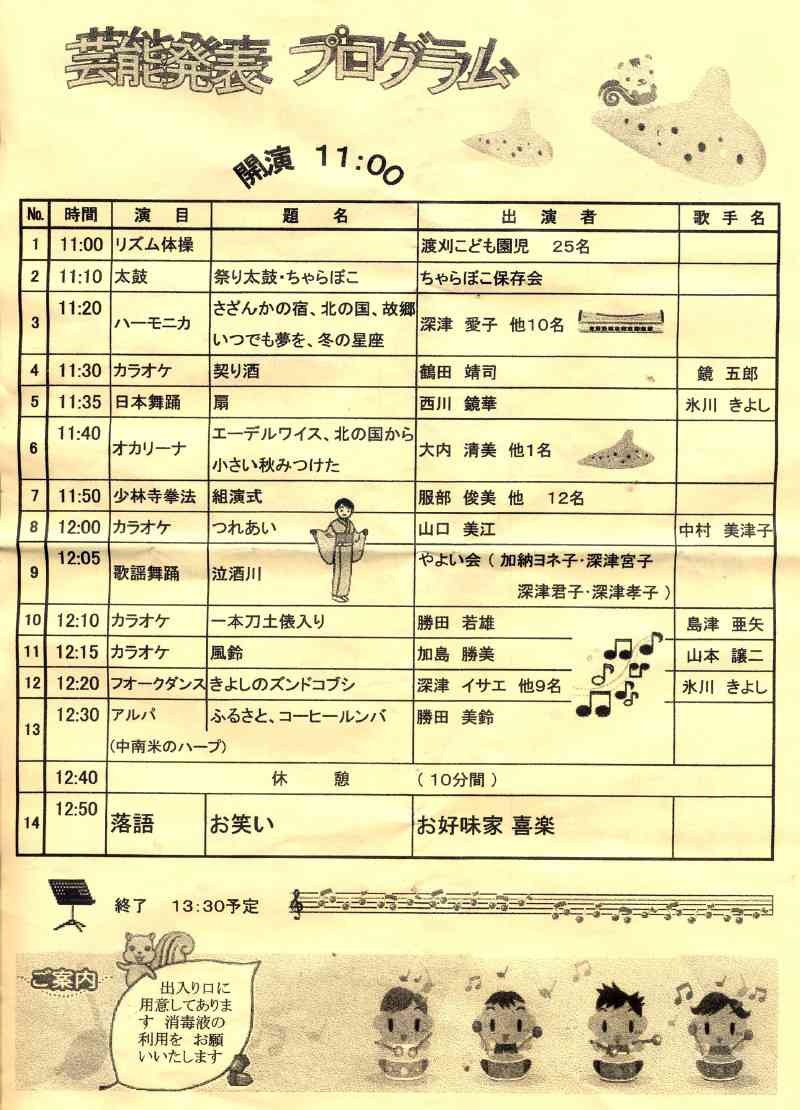 芸能発表 プログラム
開演 11:00
No. 時間 演目 題名 出演者 歌手名
1 11:00 リズム体操 渡刈こども園児 25名
2 11:10 太鼓 祭り太鼓・ちゃらぼこ ちゃらぼこ保存会
3 11:20 ハーモニカ さざんかの宿、北の国、故郷 深津 愛子 他10名
いつでも夢を、冬の星座
4 11:30 カラオケ 契り酒 鶴田 靖司 鏡 五郎
5 11:35 日本舞踊 扇 西川 鏡華 氷川 きよし
6 11:40 オカリーナ エーデルワイス、北の国から 大内 清美 他1名
小さい秋みつけた
7 11:50 少林寺拳法 組演式 服部 俊美 他 12名
8 12:00 カラオケ つれあい 山口 美江 中村 美津子
9 12:05 歌謡舞踊 泣酒川 やよい会 ( 加納ヨネ子・深津宮子
深津君子・深津孝子 )
10 12:10 カラオケ 一本刀土俵入り 勝田 若雄 島津 亜矢
11 12:15 カラオケ 風鈴 加島 勝美 山本 譲二
12 12:20 フオークダンス きよしのズンドコブシ 深津 イサエ 他9名 氷川 きよし
13 12:30 アルパ ふるさと、コーヒールンバ 勝田 美鈴
(中南米のハープ)
12:40 休憩 ( 10分間 )
14 12:50 落語 お笑い お好味家 喜楽
終了 13:30予定
ご案内
出入り口に
用意してありま
す 消毒液の
利用を お願
いいたします